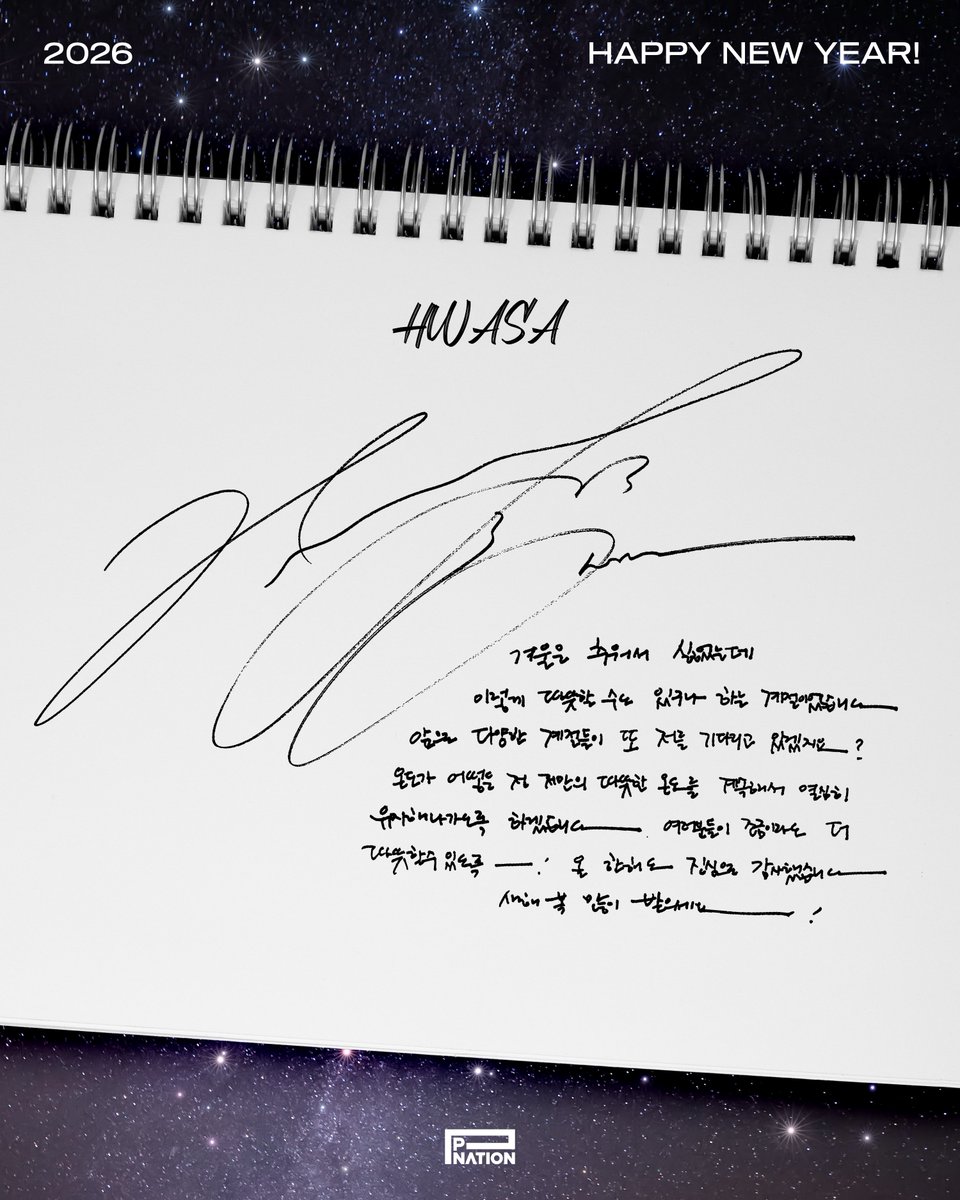 2026
HAPPY NEW YEAR!
HWASA
겨울은 추워서 싫었는데
이렇게 따뜻할 수도 있구나 하는 계절이었습니다
앞으로 다양한 계절들이 또 저를 기다리고 있겠지요?
온도가 어떻든 전 저만의 따뜻한 온도를 계속해서 열심히
유지해나가도록 하겠습니다 여러분들이 조금이라도 더
따뜻할수있도록 — ! 올 한해도 진심으로 감사했습니다
새해 복 많이 받으세요 !
P NATION